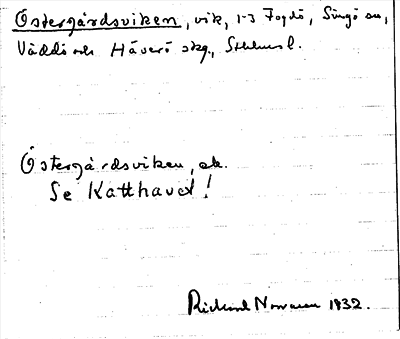 Östergårdsviken, vik, 1-3 Fogdö, Singö sn,
Väddö och Häverö skg., Sthlms l.
Östergårdsviken, ek.
Se Katthavet!
Rickard 1932.